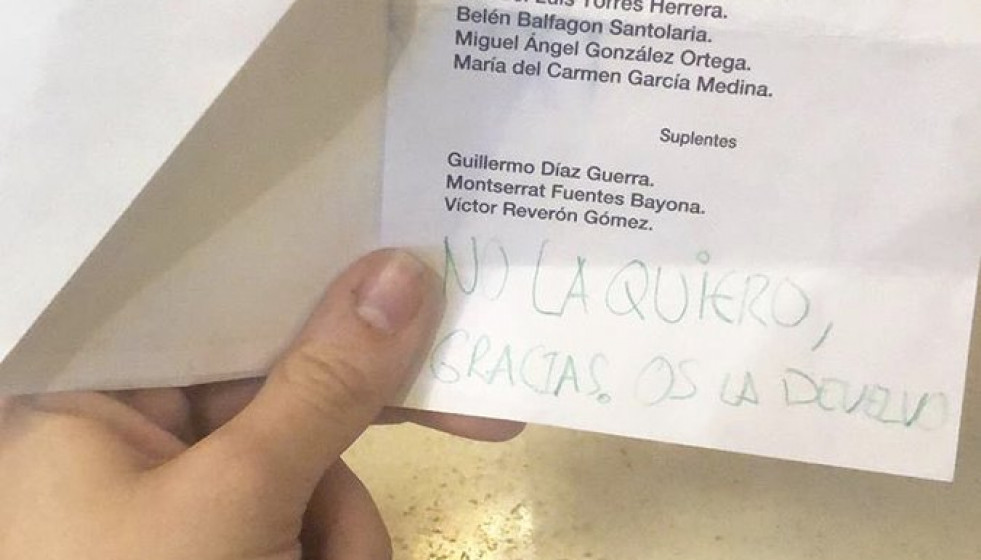 Luis Torres Herrera.
Belén Balfagon Santolaria.
Miguel Ángel González Ortega.
María del Carmen García Medina.
Suplentes
Guillermo Díaz Guerra.
Montserrat Fuentes Bayona.
Víctor Reverón Gómez.
NO LA QUiERO,
GRACIAS. OS LA DEVUELVO